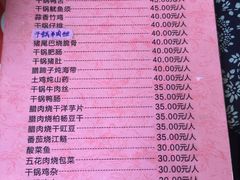 干锅鸭舌 40.00元/人
干锅鱿鱼须 45.00元/人
蒜香竹鸡 40.00元/人
干锅仔排 40.00元/人
干锅 40.00元/人
猪尾巴烧脆骨 40.00元/人
干锅肥肠 40.00元/人
干锅猪肚 40.00元/人
腊蹄子炖海带 40.00元/人
土鸡炖山药 40.00元/人
干锅牛肉丝 35.00元/人
干锅鸭肠 35.00元/人
腊肉烧干洋芋片 35.00元/人
腊肉烧柏杨豆干 35.00元/人
腊肉烧干豇豆 35.00元/人
番茄烧江鲢 35.00元/人
酸菜鱼 30.00元/人
五花肉烧包菜 30.00元/人
干锅鸡杂 30.00元/人
30.00元/人